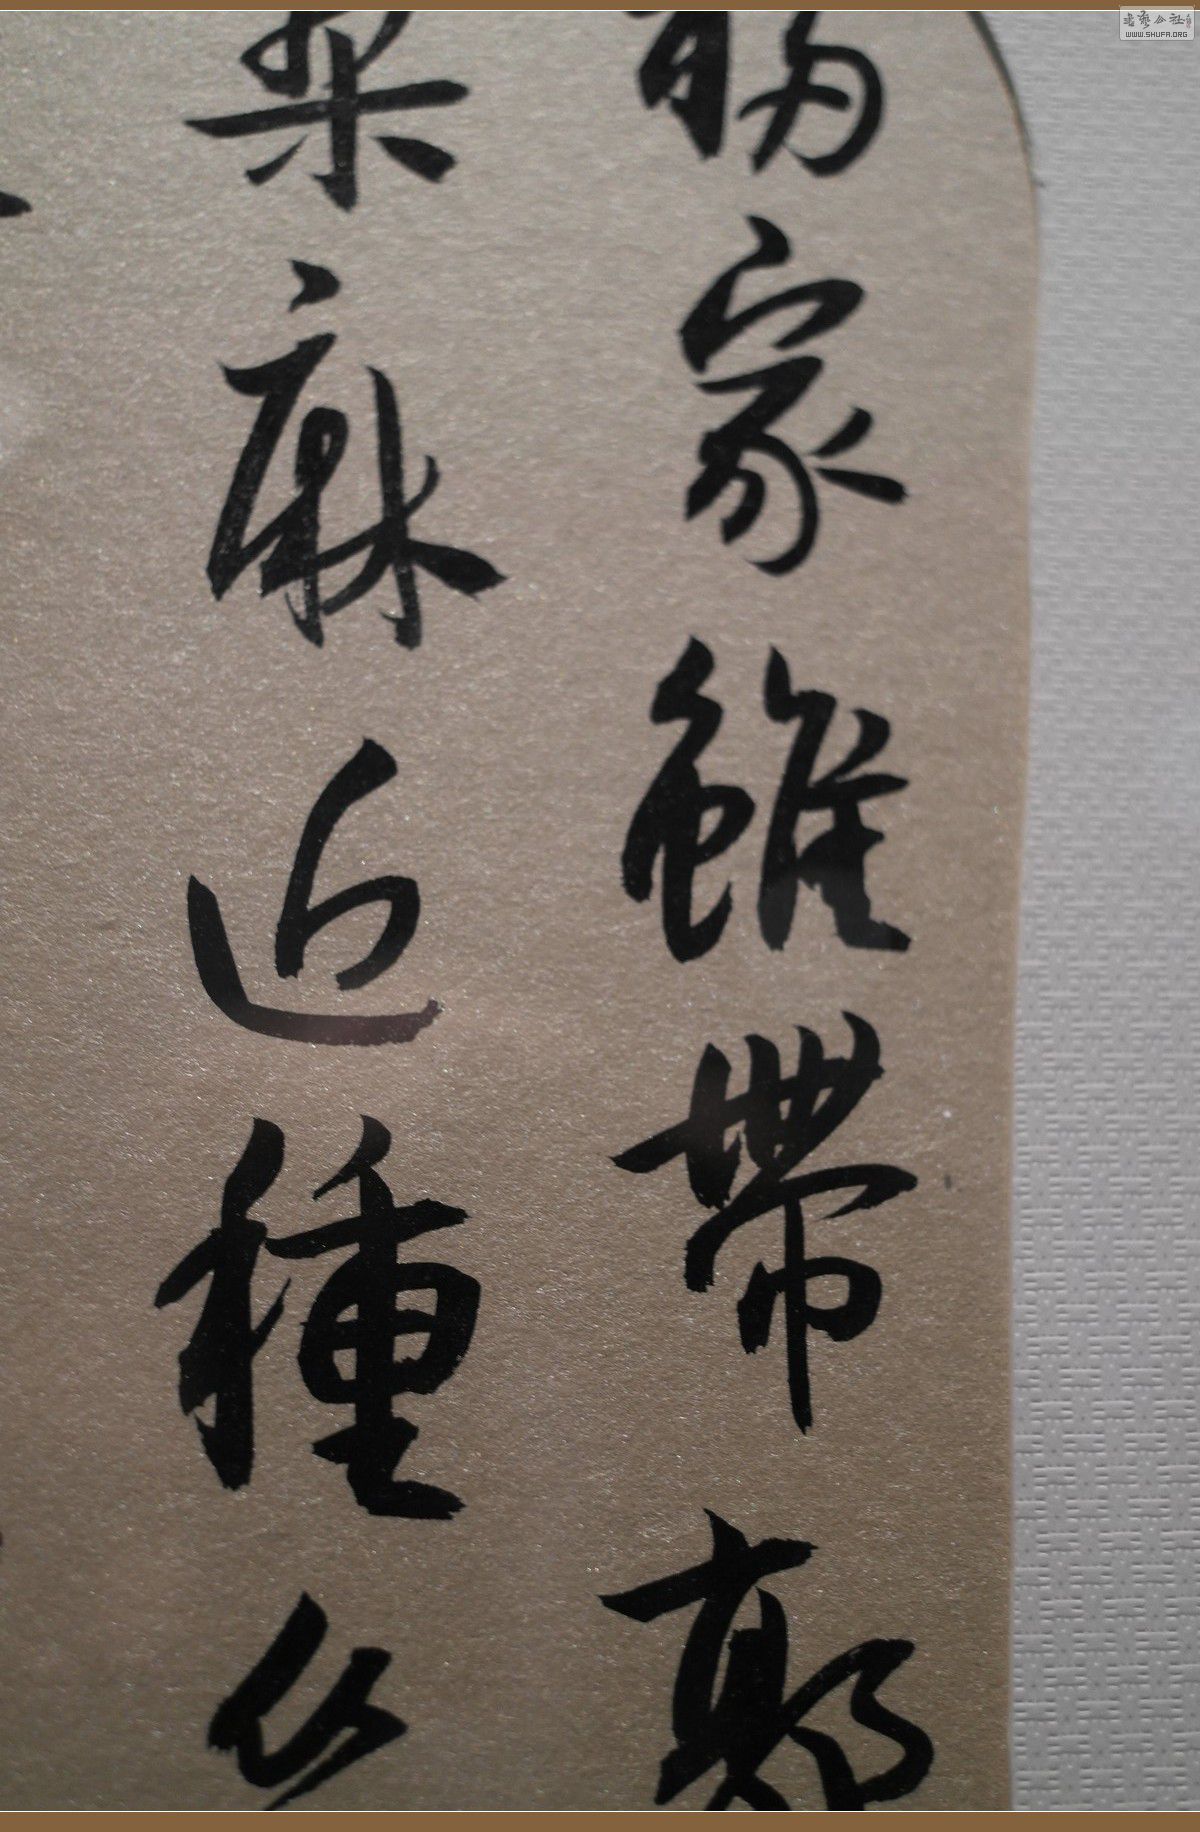 移家雖帶郭
桑麻近種
书艺公社
WWW.SHUFA.ORG